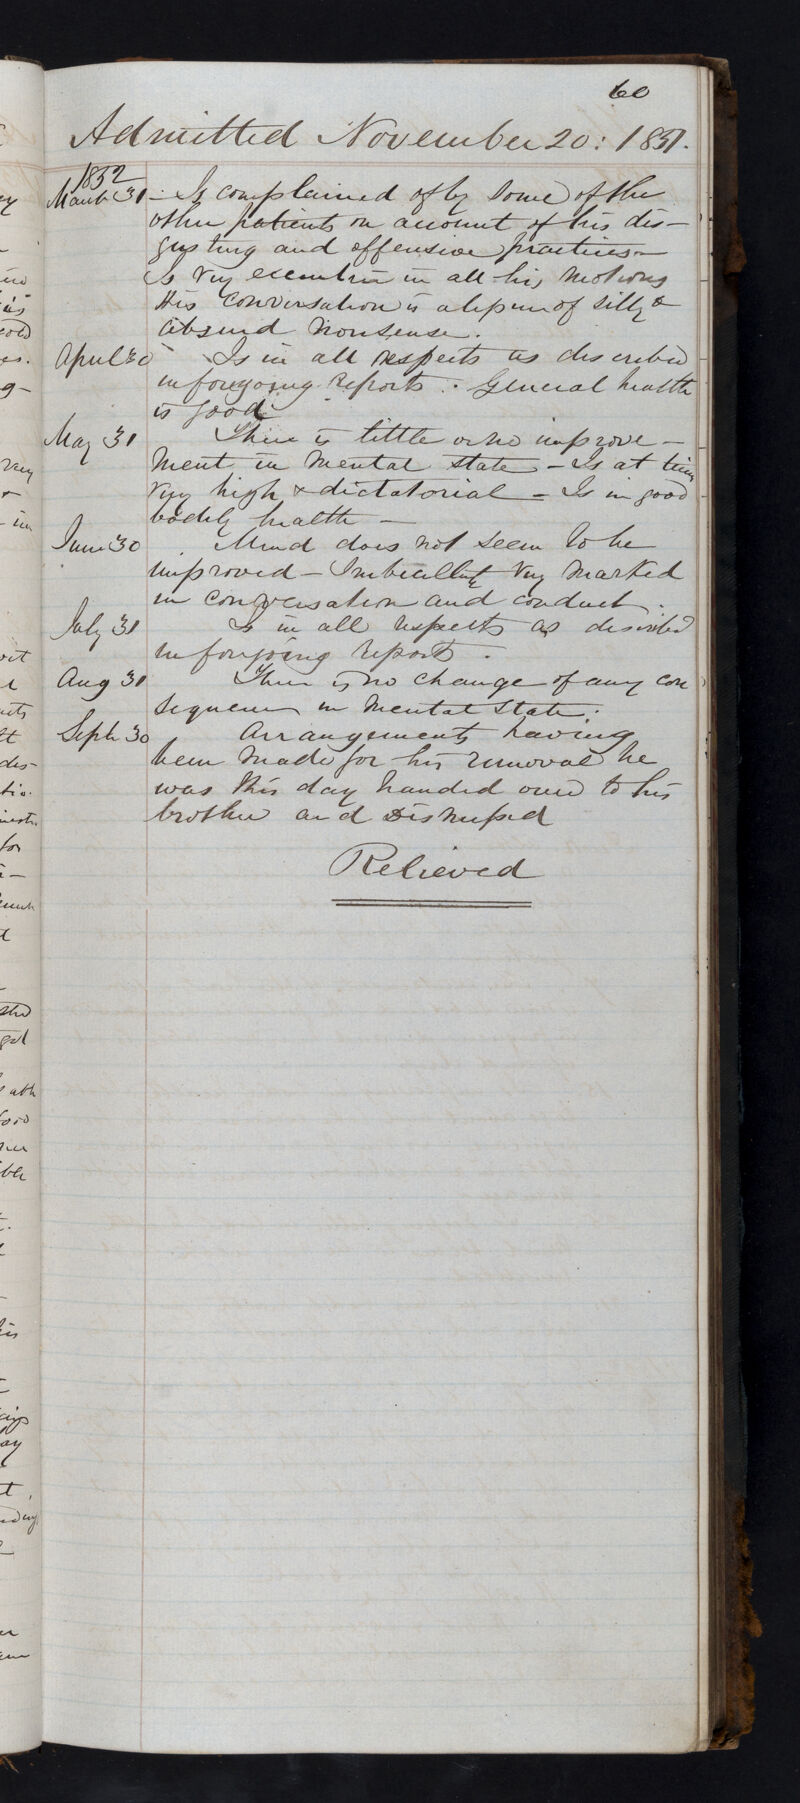 60
Admitted November 20: 1851.
1852
March 31 - Is complained of by some of the
other patients on account of his dis-
gusting and offensive practices -
Is very excentric in all his motions
His conversation is a tissue of silly &
absurd nonsense.
April 30 Is in all respects as described
in foregoing reports. General health
is good
May 31 There is little or no improve-
ment in mental state - Is at times
very high & dictatorial - Is in good
bodily health -
June 30 Mind does not seem to be
improved - Imbecility very marked
in conversation and conduct.
July 31 Is in all respects as described
in foregoing reports.
Aug 31 There is no change of any con
sequence in mental state.
Sept 30 Arrangements having
been made for his removal he
was this day handed over to his
brother and Dismissed
Relieved